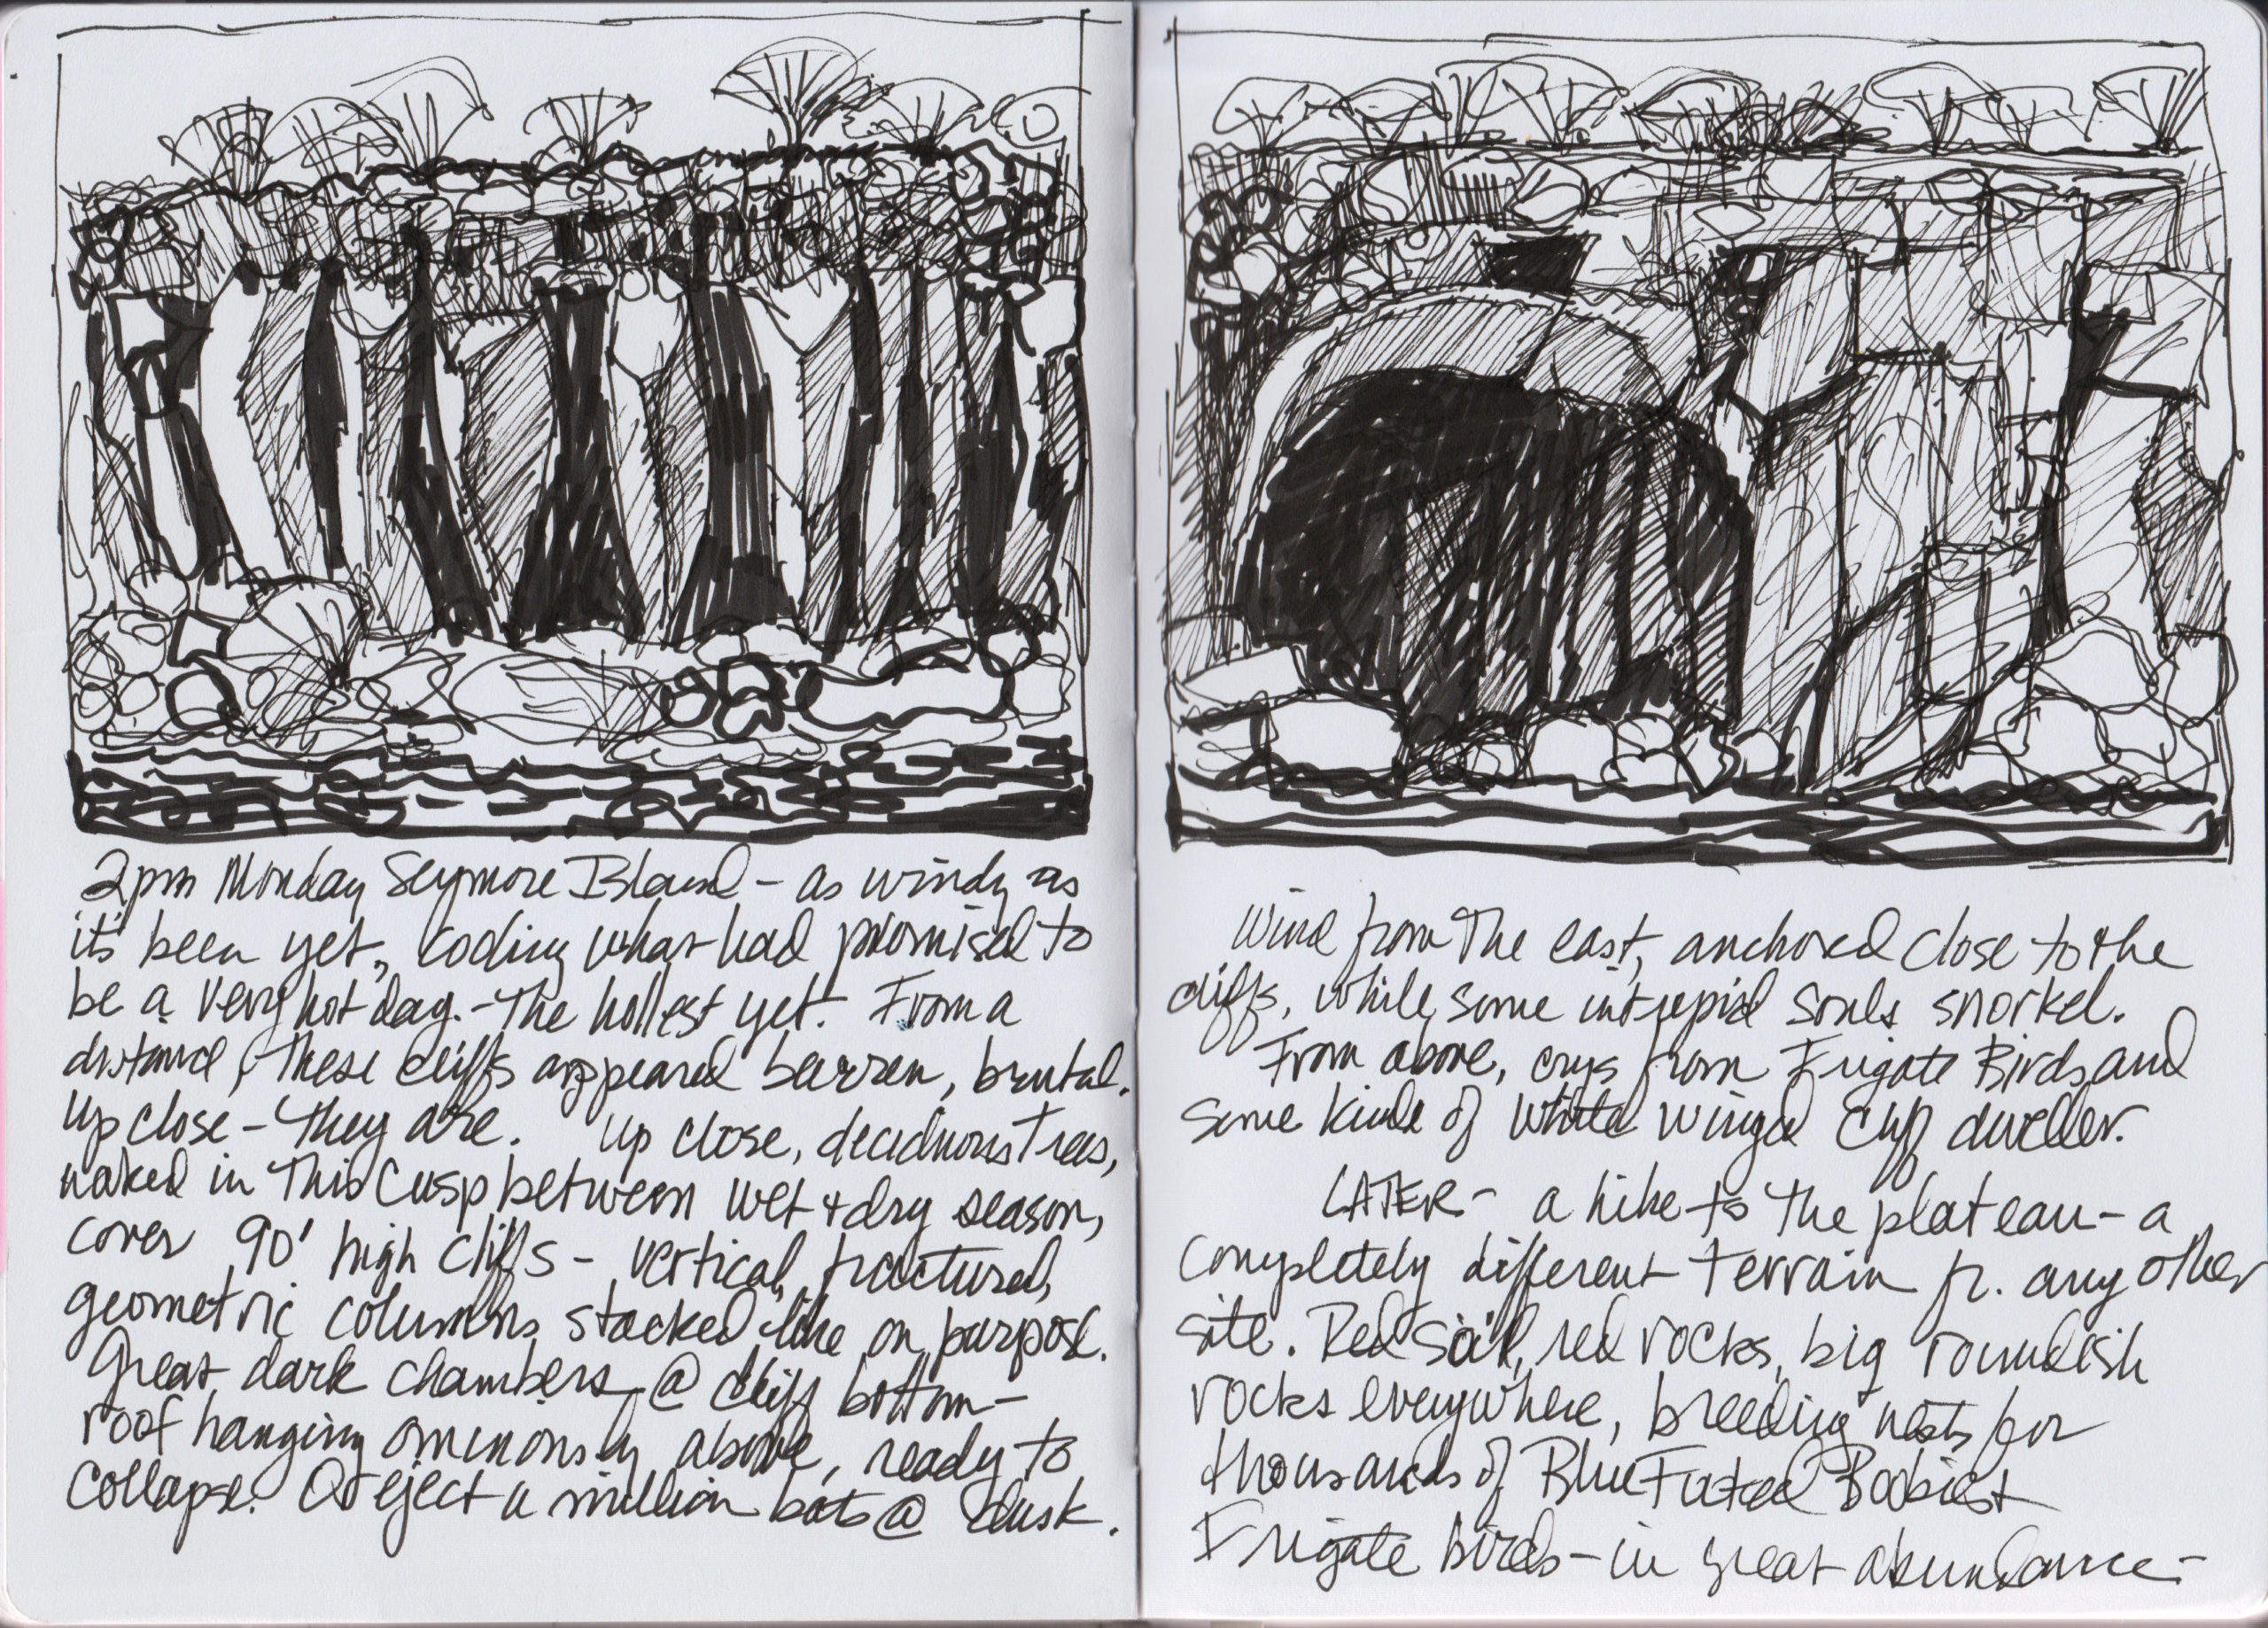 2pm Monday Seymore Island - as windy as
it's been yet, cooling what had promised to
be a very hot day. - The hottest yet. From a
distance, these cliffs appeared barren, brutal.
Up close - They are. Up close, deciduous Trees,
naked in This Cusp between wet + dry season,
cover 90' high cliffs - vertical, fractured,
geometric columns stacked like on purpose.
Great dark chambers @ cliff bottom -
roof hanging ominously above, ready to
collapse. Or eject a million bats @ dusk.
Wind from The east, anchored close to the
cliffs, while some intrepid souls snorkel.
From above, crys from Frigate Birds and
some kind of white winged cliff dweller.
LATER - a hike to The plateau - a
completely different terrain fr. any other
site. Red soil, red rocks, big roundish
rocks everywhere, breeding nests for
thousands of Blue Futed Boobies +
Frigate birds - in great abundance -